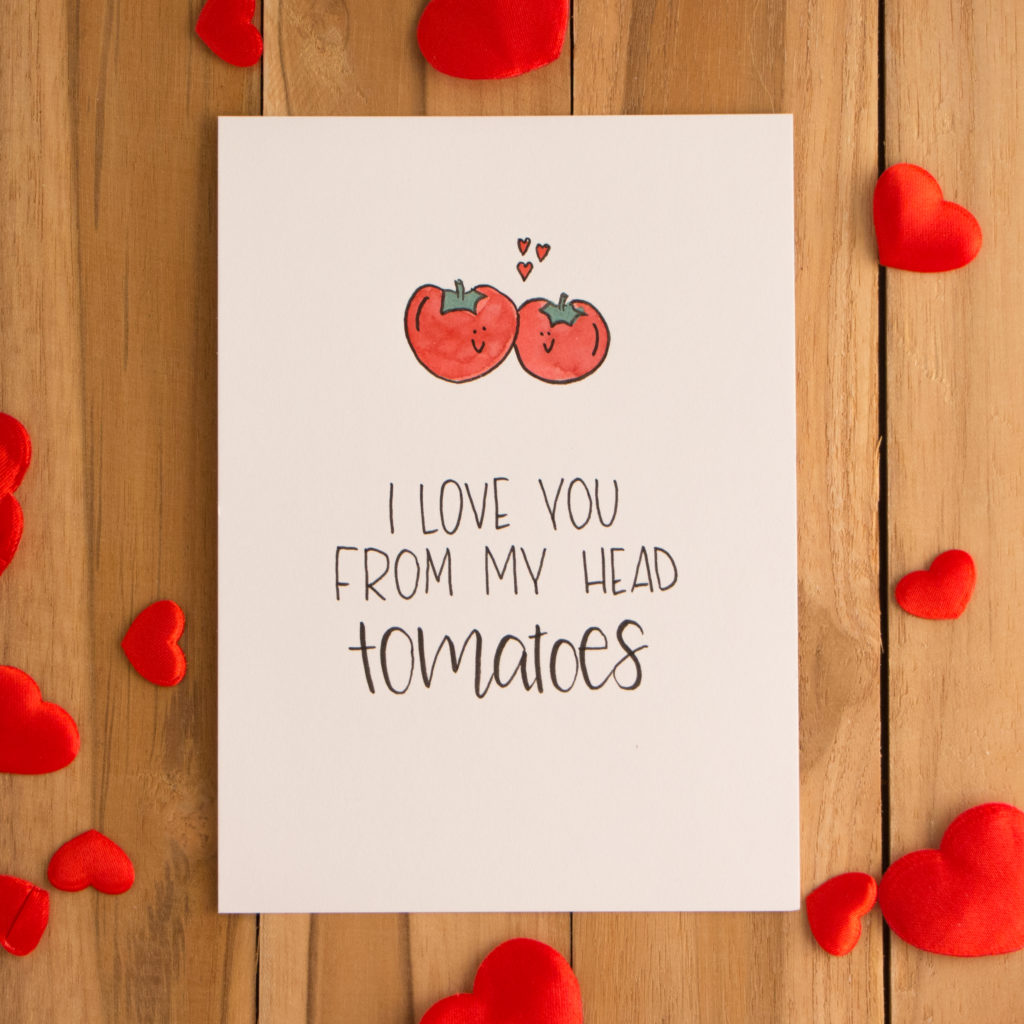 I LOVE YOU
FROM MY HEAD
tomatoes